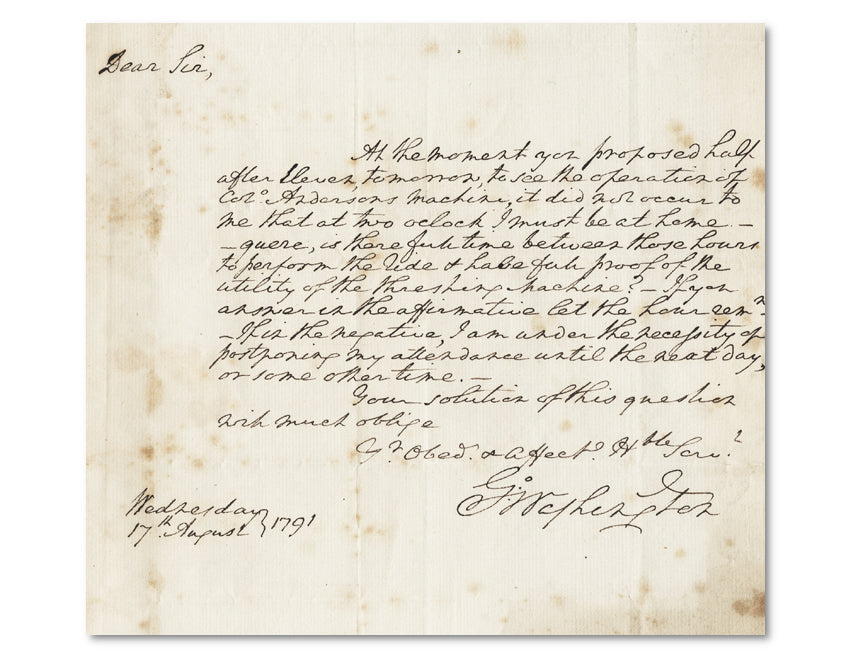 Dear Sir,
At the moment you proposed half
after Eleven, tomorrow, to see the operation of
Colo. Andersons machine, it did not occur to
me that at two oclock I must be at home. —
— quere, is there full time between those hours
to perform the ride & have full proof of the
utility of the threshing Machine? — If you
answer in the affirmative let the hour remn.
— If in the negative, I am under the necessity of
postponing my attendance until the next day,
or some other time. —
Your solution of this question
will much oblige
Yr Obedt. & affecte. Hble Servt.
Go: Washington
Wednesday
17th. August } 1791